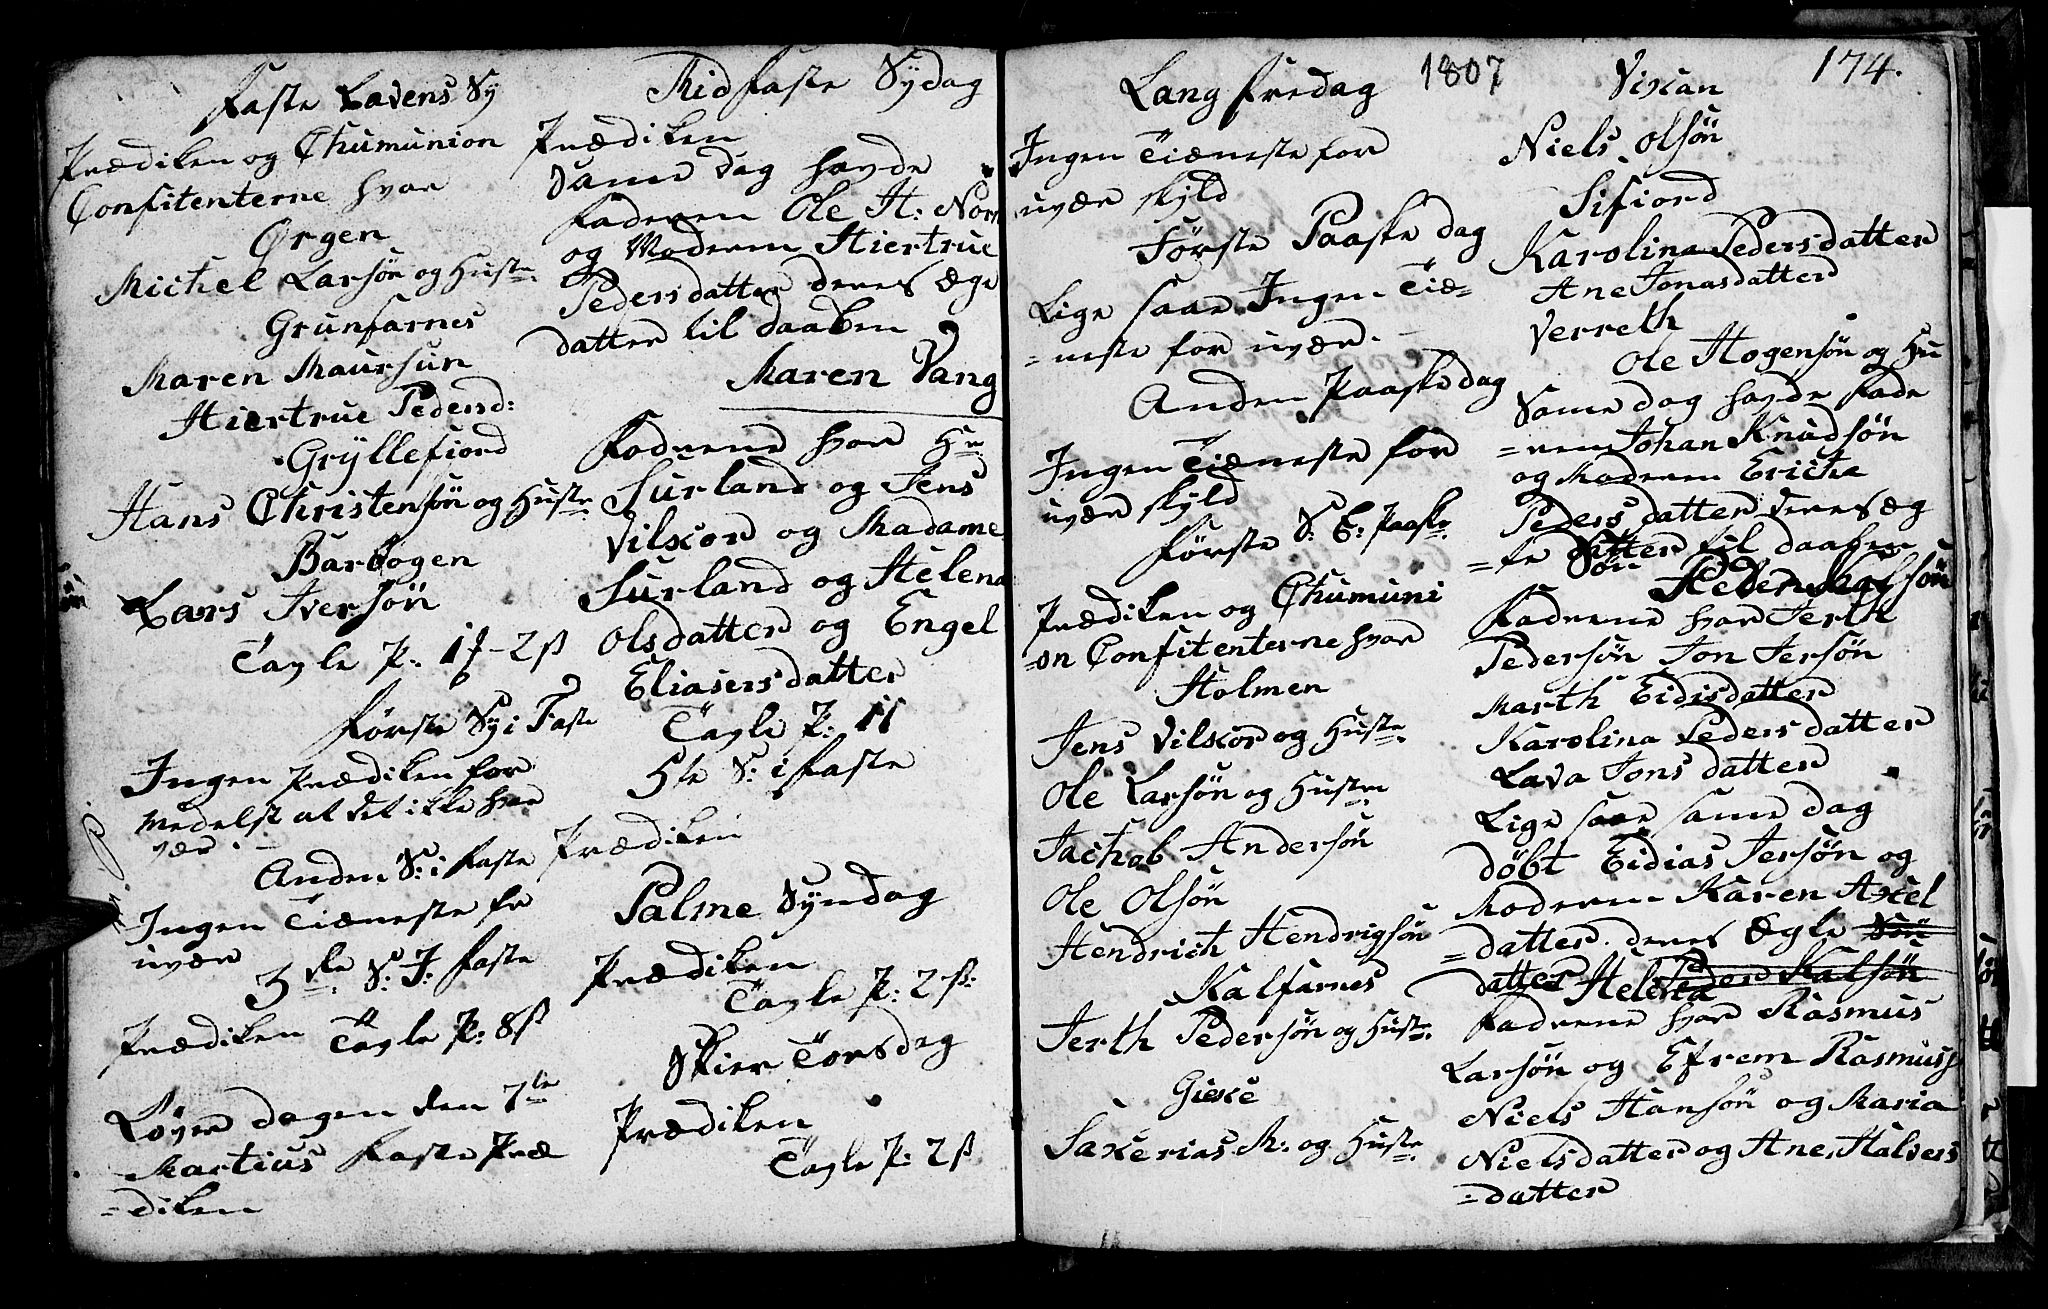 Faste Lavens Sy
Prædiken og Chumunion
Confitenterne hvar
Ørgen
Michel Larsøn og Hustr.
Grunfarnes
Maren Maursun
Hiertrue Pedersd:
Gryllefiord
Hans Christensøn og Hustr.
Barbogen
Lars Iversøn
Tavle P: 1 f - 2 ß
Første Sy i Faste
Ingen Prædiken for
medelst at det ikke hvar
vær. -
Anden S: i Faste
Ingen Tiæneste for
uvær
3de S: I: Faste
Prædiken Tavle P: 8 ß
Løver dagen den 7de
Martius Faste Præ
=diken
Midfaste Sydag
Prædiken
Same dag havde
Faderen Ole H: Nor
og Moderen Hiertrue
Pedersdatter deres ægte
datter til daaben
Maren Vang
Fadrene hvar Hr
Surland og Jens
Vilscor og Madame
Surland og Helena
Olsdatter og Engel
Eliasersdatter
Tavle P: 11
5te S: i Faste
Prædiken
Palme Syndag
Prædiken
Tavle P: 2 ß:
Skier Torsdag
Prædiken
Tavle P: 2 ß
1807
174.
Lang fredag
Ingen Tiæneste for
uvær skyld
Første Paaske dag
Lige saa Ingen Tiæ=
=neste for uvær. -
Anden Paaske dag
Ingen Tiæneste for
uvær skyld
Første S: E: Paaske
Prædiken og Chumuni
=on Confitenterne hvar
Holmen
Jens Vilscor og Hustr.
Ole Larsøn og Hustr
Jachob Andersøn
Ole Olsøn
Hendrich Hendrigsøn
Kalfarnes
Jerth Pedersøn og Hustr.
Giesce
Sacerias M: og Hustr.
Vixan
Niels Olsøn
Sifiord
Karolina Pedersdatter
Ane Jonasdatter
Verreth
Ole Hogensøn og Hu
Same dag havde Fade
=ren Johan Knudsøn
og Moderen Ericha
Peders datter deres æg
=te datter til daaben
Søn
Peder
Fadrene hvar Jerth
Pedersøn Jon Jersøn
Marth Eidisdatter
Karolina Peders datter
Lava Jons datter
Lige saa same dag
døbt Eidias Jersøn og
Moderen Karen Axel
=datter deres Ægte Søn
datter Helena Peder Kalsøn
Fadrene hvar Rasmus
Larsøn og Efrem Rasmuss
Niels Hansøn og Maria
Nielsdatter og Ane Halvers
=datter